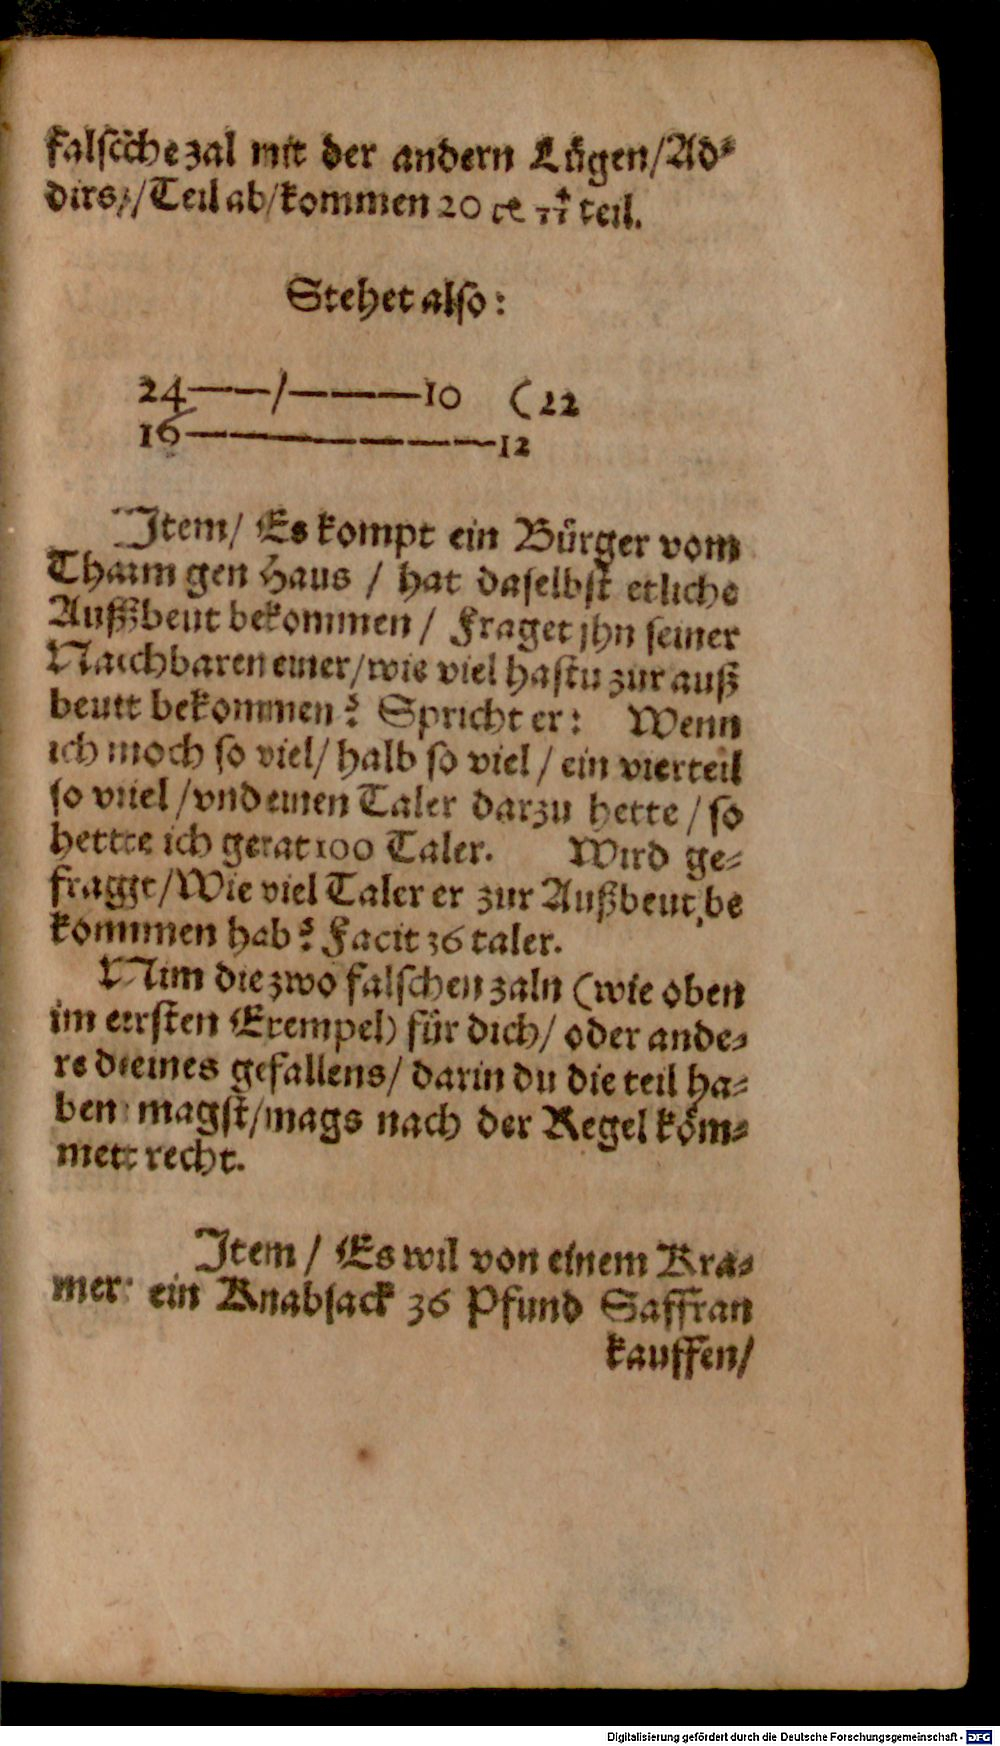 falsche zal mit der andern Lügen/Ad-
dirs/Teil ab/kommen 20 teil.
Stehet also:
24——/———10 (22
16———————12
Item/ Es kompt ein Bürger vom
Tharm gen Haus / hat daselbst etliche
Außbeut bekommen / Fraget jhn seiner
Nachbaren einer/wie viel hastu zur auß
beut bekommen? Spricht er: Wenn
ich noch so viel/ halb so viel / ein vierteil
so viel /vnd einen Taler darzu hette / so
hette ich gerat 100 Taler. Wird ge-
fragt/Wie viel Taler er zur Außbeut be
kommen hab? Facit 36 taler.
Nim die zwo falschen zaln (wie oben
im ersten Exempel) für dich/ oder ande-
re deines gefallens/ darin du die teil ha-
ben magst/mags nach der Regel köm-
met recht.
Item / Es wil von einem Kra-
mer ein Knabsack 36 Pfund Saffran
kauffen/
Digitalisierung gefördert durch die Deutsche Forschungsgemeinschaft - DFG